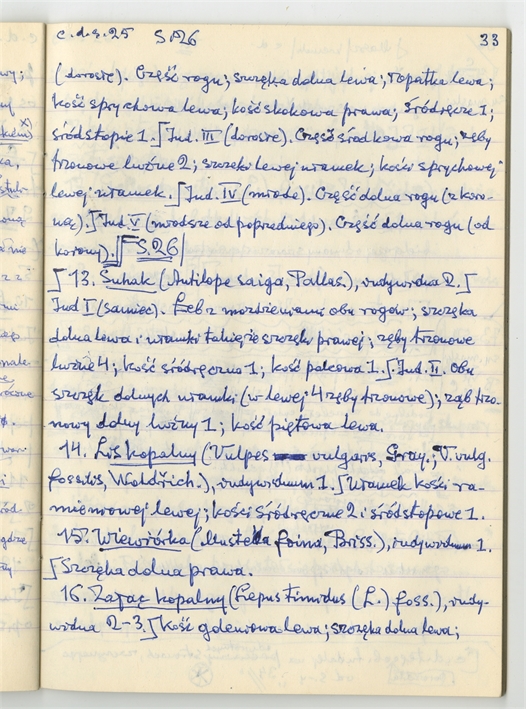 c.d.s. 25 S. 26 33
(dorosłe). Część rogu; szczęka dolna lewa; łopatka lewa;
kość sprychowa lewa; kość skokowa prawa; śródręcze 1;
śródstopie 1. ∫ Ind. III (dorosłe). Część środkowa rogu; zęby
trzonowe luźne 2; szczęki lewej ułamek; kości sprychowej
lewej ułamek. ∫ Ind. IV (młode). Część dolna rogu (z koro-
ną). ∫ Ind. V (młodsze od poprzedniego). Część dolna rogu (od
korony). ∫ S. 26
∫ 13. Suhak (Antilope saiga, Pallas.), indywidua 2. ∫
Ind I (samiec). Łeb z możdżeniami obu rogów; szczęka
dolna lewa i ułamki takiejże szczęki prawej; zęby trzonowe
luźne 4; kość śródręczna 1; kość palcowa 1. ∫ Ind. II. Obu
szczęk dolnych ułamki (w lewej 4 zęby trzonowe); ząb trzo-
nowy dolny luźny 1; kość piętowa lewa.
14. Lis kopalny (Vulpes vulgaris, Gray.; V. vulg.
fossilis, Woldřich.), indywiduum 1. ∫ Ułamek kości ra-
mieniowej lewej; kości śródręczne 2 i śródstopowe 1.
15. Wiewiórka (Mustela foina, Briss.), indywiduum 1.
∫ Szczęka dolna prawa.
16. Zając kopalny (Lepus timidus (L.) foss.), indy-
widua 2-3. ∫ Kość goleniowa lewa; szczęka dolna lewa;